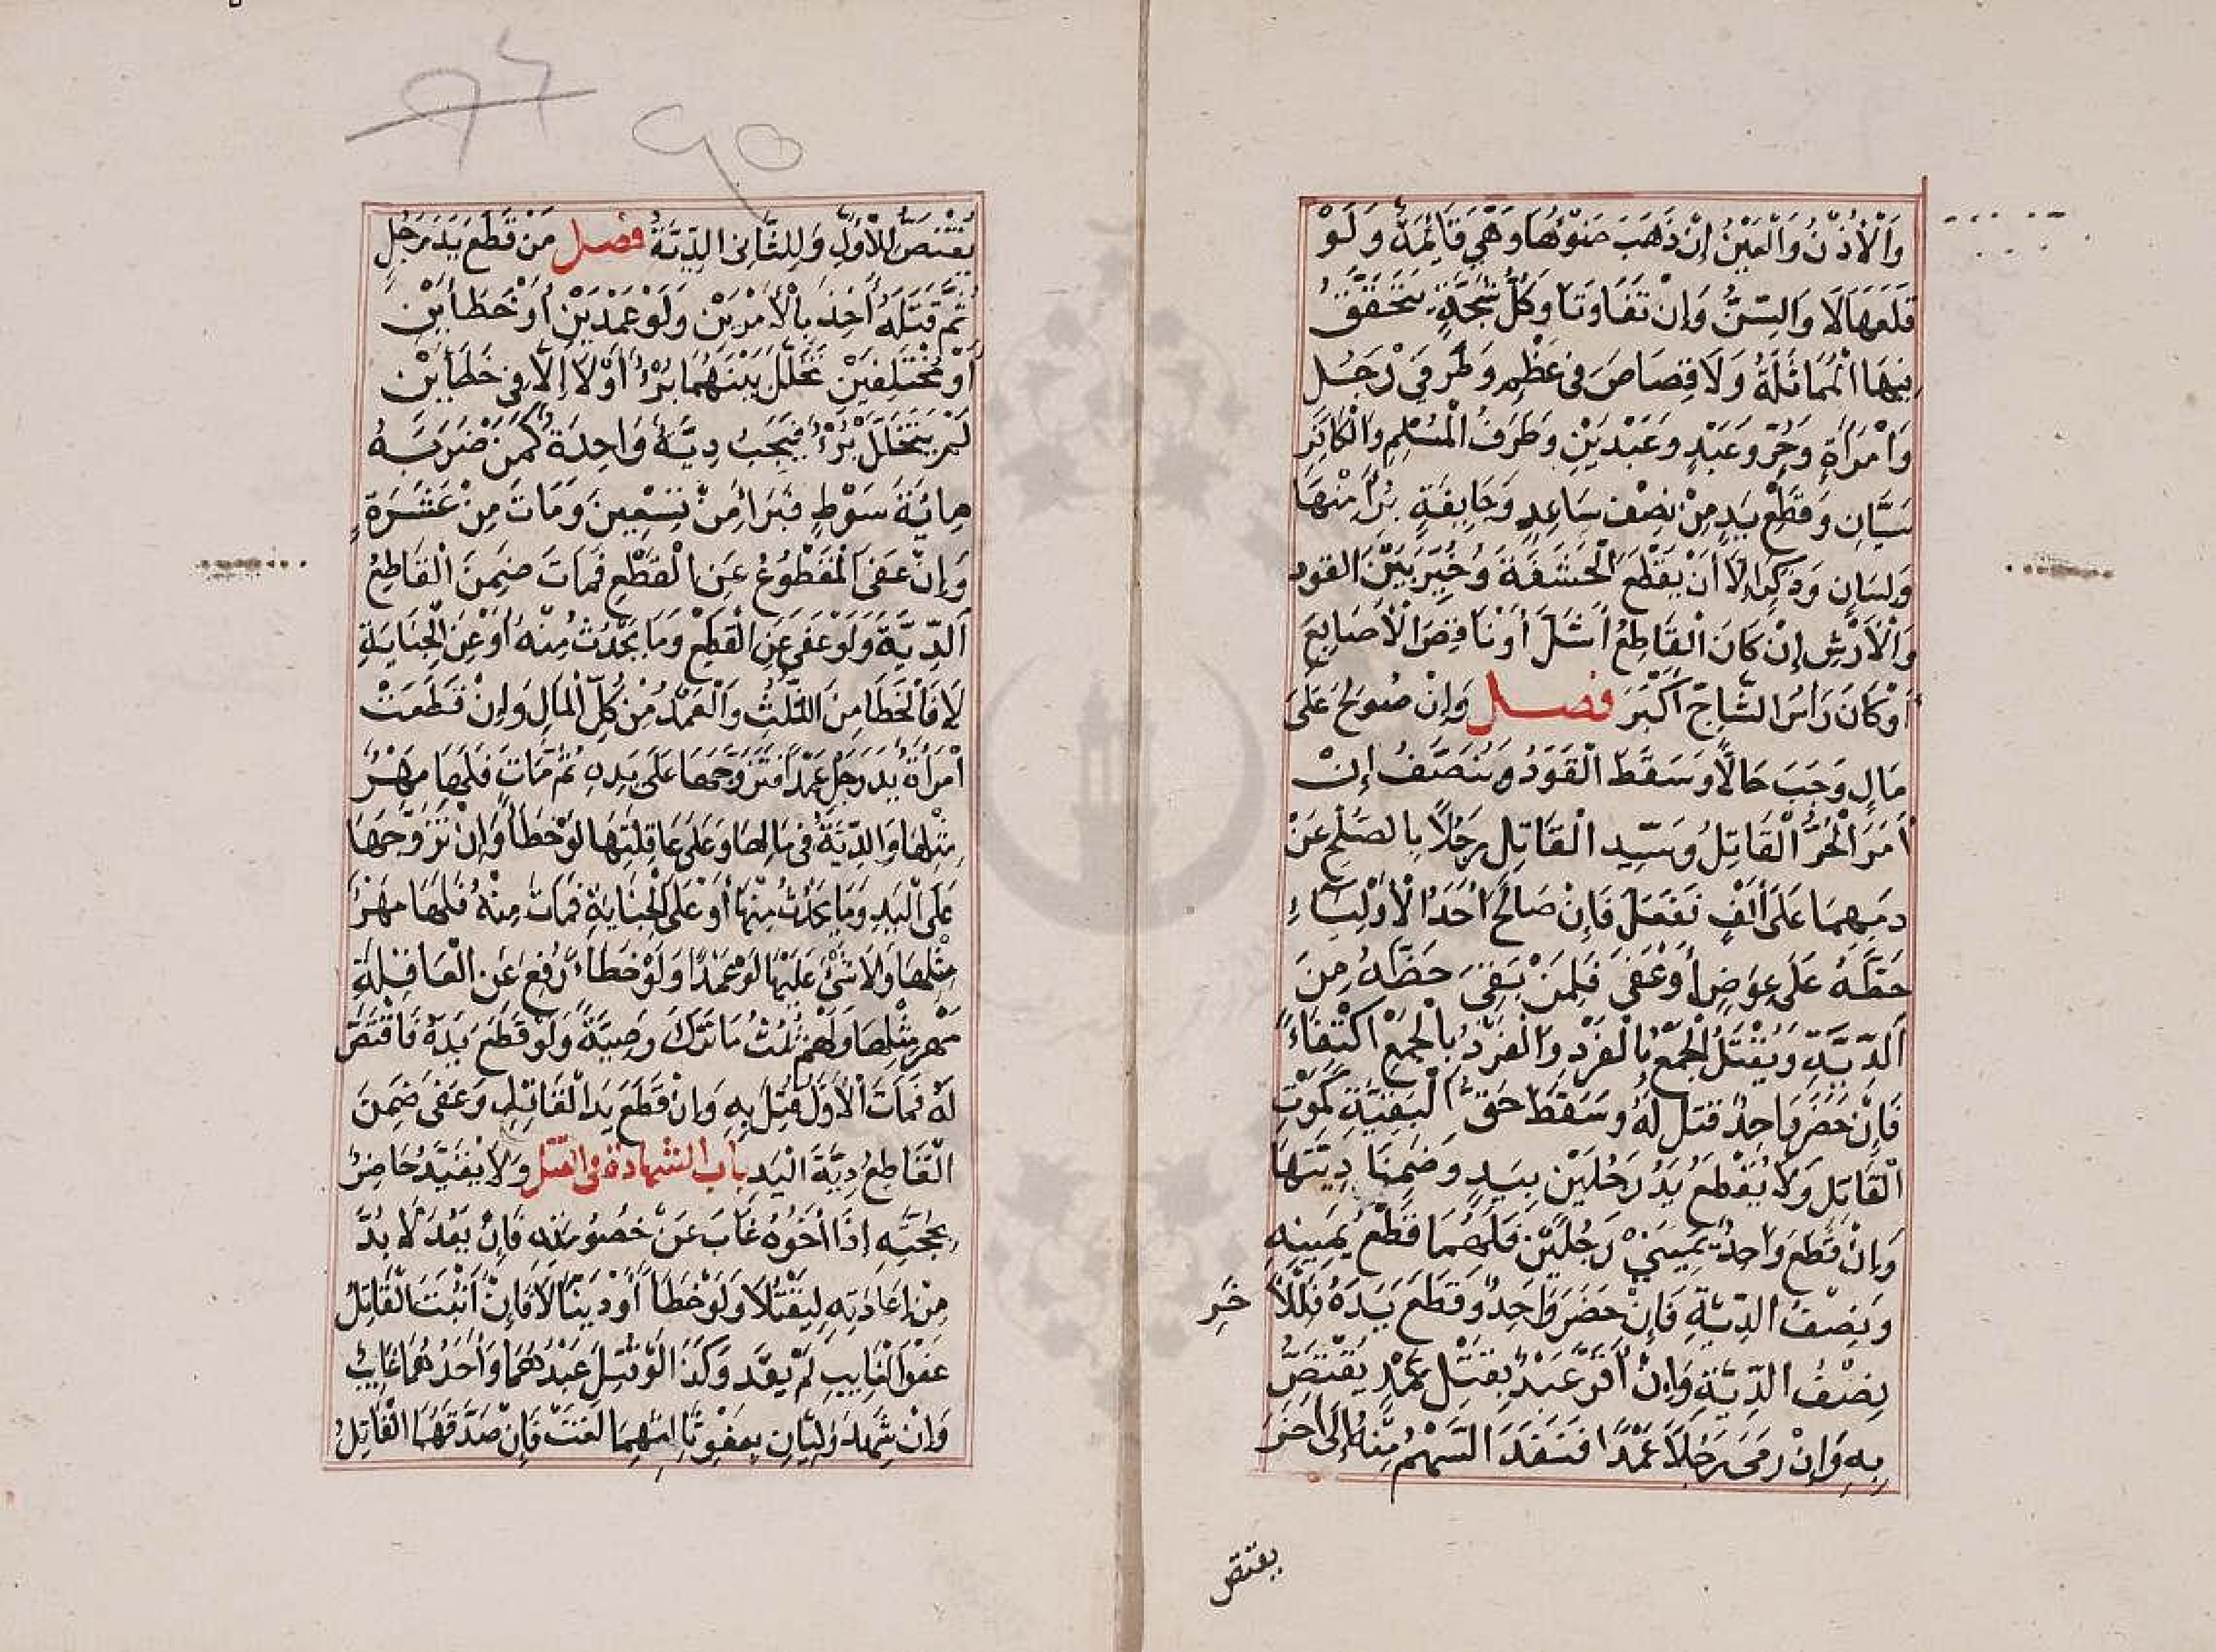 وَالْأُذُنُ وَالْعَيْنُ إِنْ ذَهَبَ ضَوْؤُهَا وَهِيَ قَائِمَةٌ وَلَوْ
قَلَعَهَا لَا وَالسِّنُّ وَإِنْ تَفَاوَتَا وَكُلُّ شَجَّةٍ يَتَحَقَّقُ
فِيهَا الْمُمَاثَلَةُ وَلَا قِصَاصَ فِي عَظْمٍ وَطَرَفَيْ رَجُلٍ
وَامْرَأَةٍ وَحُرٍّ وَعَبْدٍ وَعَبْدَيْنِ وَطَرَفُ الْمُسْلِمِ وَالْكَافِرِ
سِيَّانِ وَقَطْعِ يَدٍ مِنْ نِصْفِ سَاعِدٍ وَجَايِفَةٍ بَرَأَ مِنْهَا
وَلِسَانٍ وَذَكَرٍ إِلَّا أَنْ يَقْطَعَ الْحَشَفَةَ وَخُيِّرَ بَيْنَ الْقَوَدِ
وَالْأَرْشِ إِنْ كَانَ الْقَاطِعُ أَشَلَّ أَوْ نَاقِصَ الْأَصَابِعِ
أَوْ كَانَ رَأْسُ الشَّاجِّ أَكْبَرَ فصل وَإِنْ صُولِحَ عَلَى
مَالٍ وَجَبَ حَالًّا وَسَقَطَ الْقَوَدُ وَيُنَصَّفُ إِنْ
أَمَرَ الْحُرُّ الْقَاتِلُ وَسَيِّد الْقَاتِلِ رَجُلًا بِالصُّلْحِ عَنْ
دَمِهِمَا عَلَى أَلْفٍ فَفَعَلَ فَإِنْ صَالَحَ أَحَدُ الْأَوْلِيَاءِ
حَظَّهُ عَلَى عِوَضٍ أَوْ عَفَى فَلِمَنْ بَقِيَ حَظُّهُ مِنَ
الدِّيَةِ وَيُقْتَلُ الْجَمْعُ بِالْفَرْدِ وَالْفَرْدُ بِالْجَمْعِ اكْتِفَاءً
فَإِنْ حَضَرَ وَاحِدٌ قُتِلَ لَهُ وَسَقَطَ حَقُّ الْبَقِيَّةِ كَمَوْتِ
الْقَاتِلِ وَلَا يُقْطَعُ يَدُ رَجُلَيْنِ بِيَدٍ وَضَمِنَا دِيَتَهَا
وَإِنْ قَطَعَ وَاحِدٌ يَمِينَيْ رَجُلَيْنِ فَلَهُمَا قَطْعُ يَمِينِهِ
وَنِصْفُ الدِّيَةِ فَإِنْ حَضَرَ وَاحِدٌ وَقَطَعَ يَدَهُ فَلِلْآ خَرِ
نِصْفُ الدِّيَةِ وَإِنْ أَقَرَّ عَبْدٌ بِقَتْلٍ عَمْدٍ يُقْتَصُّ
بِهِ وَإِنْ رَمَى رَجُلًا عَمْدًا فَنَفَذَ السَّهْمُ مِنْهُ إِلَى آخَرَ
يقتص
يُقْتَصُّ لِلْأَوَّلِ وَلِلثَّانِي الدِّيَةُ فصل مَنْ قَطَعَ يَدَ رَجُلٍ
ثُمَّ قَتَلَهُ أُخِذَ بِالْأَمْرَيْنِ وَلَوْ عَمْدَيْنِ أَوْ خَطَأَيْنِ
أَوْ مُخْتَلِفَيْنِ تَخَلَّلَ بَيْنَهُمَا بُرْءٌ أَوْ لَا إِلَّا فِي خَطَأَيْنِ
لَمْ يَتَخَلَّلْ بُرْءٌ فَيَجِبُ دِيَةٌ وَاحِدَةٌ كَمَنْ ضَرَبَهُ
مِائَةَ سَوْطٍ فَبَرَأَ مِنْ تِسْعِينَ وَمَاتَ مِنْ عَشَرَةٍ
وَإِنْ عَفَى الْمَقْطُوعُ عَنِ الْقَطْعِ فَمَاتَ ضَمِنَ الْقَاطِعُ
الدِّيَةَ وَلَوْ عَفَى عَنِ الْقَطْعِ وَمَا يَحْدُثُ مِنْهُ أَوْ عَنِ الْجِنَايَةِ
لَا فَالْخَطَأُ مِنَ الثُّلُثِ وَالْعَمْدُ مِنْ كُلِّ الْمَالِ وَإِنْ قَطَعَتْ
امْرَأَةٌ يَدَ رَجُلٍ عَمْدًا فَتَزَوَّجَهَا عَلَى يَدِهِ ثُمَّ مَاتَ فَلَهَا مَهْرُ
مِثْلِهَا وَالدِّيَةُ فِي مَالِهَا وَعَلَى عَاقِلَتِهَا لَوْ خَطَأً وَإِنْ تَزَوَّجَهَا
عَلَى الْيَدِ وَمَا يَحْدُثُ مِنْهَا أَوْ عَلَى الْجِنَايَةِ فَمَاتَ مِنْهُ فَلَهَا مَهْرُ
مِثْلِهَا وَلَا شَيْءَ عَلَيْهَا لَوْ عَمْدًا وَلَوْ خَطَأً رُفِعَ عَنِ الْعَاقِلَةِ
مَهْرُ مِثْلِهَا وَلَهُمْ ثُلُثُ مَا تَرَكَ وَصِيَّةً وَلَوْ قَطَعَ يَدَهُ فَاقْتَصَّ
لَهُ فَمَاتَ الْأَوَّلُ قُتِلَ بِهِ وَإِنْ قَطَعَ يَدَ الْقَاتِلِ وَعَفَى ضَمِنَ
الْقَاطِعُ دِيَةَ الْيَدِ باب الشهادة في القتل وَلَا يُقَيَّدُ حَاضِرٌ
بِحُجَّتِهِ إِذَا أَخُوهُ غَابَ عَنْ خُصُومَتِهِ فَإِنْ يَعُدْ لَا بُدَّ
مِنْ إِعَادَتِهِ لِيَقْتُلَا وَلَوْ خَطَأً أَوْ دَيْنًا لَا فَإِنْ أَثْبَتَ الْقَاتِلُ
عَفْوَ الْغَايِبِ لَمْ يَعُدْ وَكَذَا لَوْ قُتِلَ عَبْدُهُمَا وَأَحَدُهُمَا غَايِبٌ
وَإِنْ شَهِدَ وَلِيَّانِ بِعَفْوِ ثَالِثِهِمَا لَغَتْ فَإِنْ صَدَّقَهُمَا الْقَاتِلُ